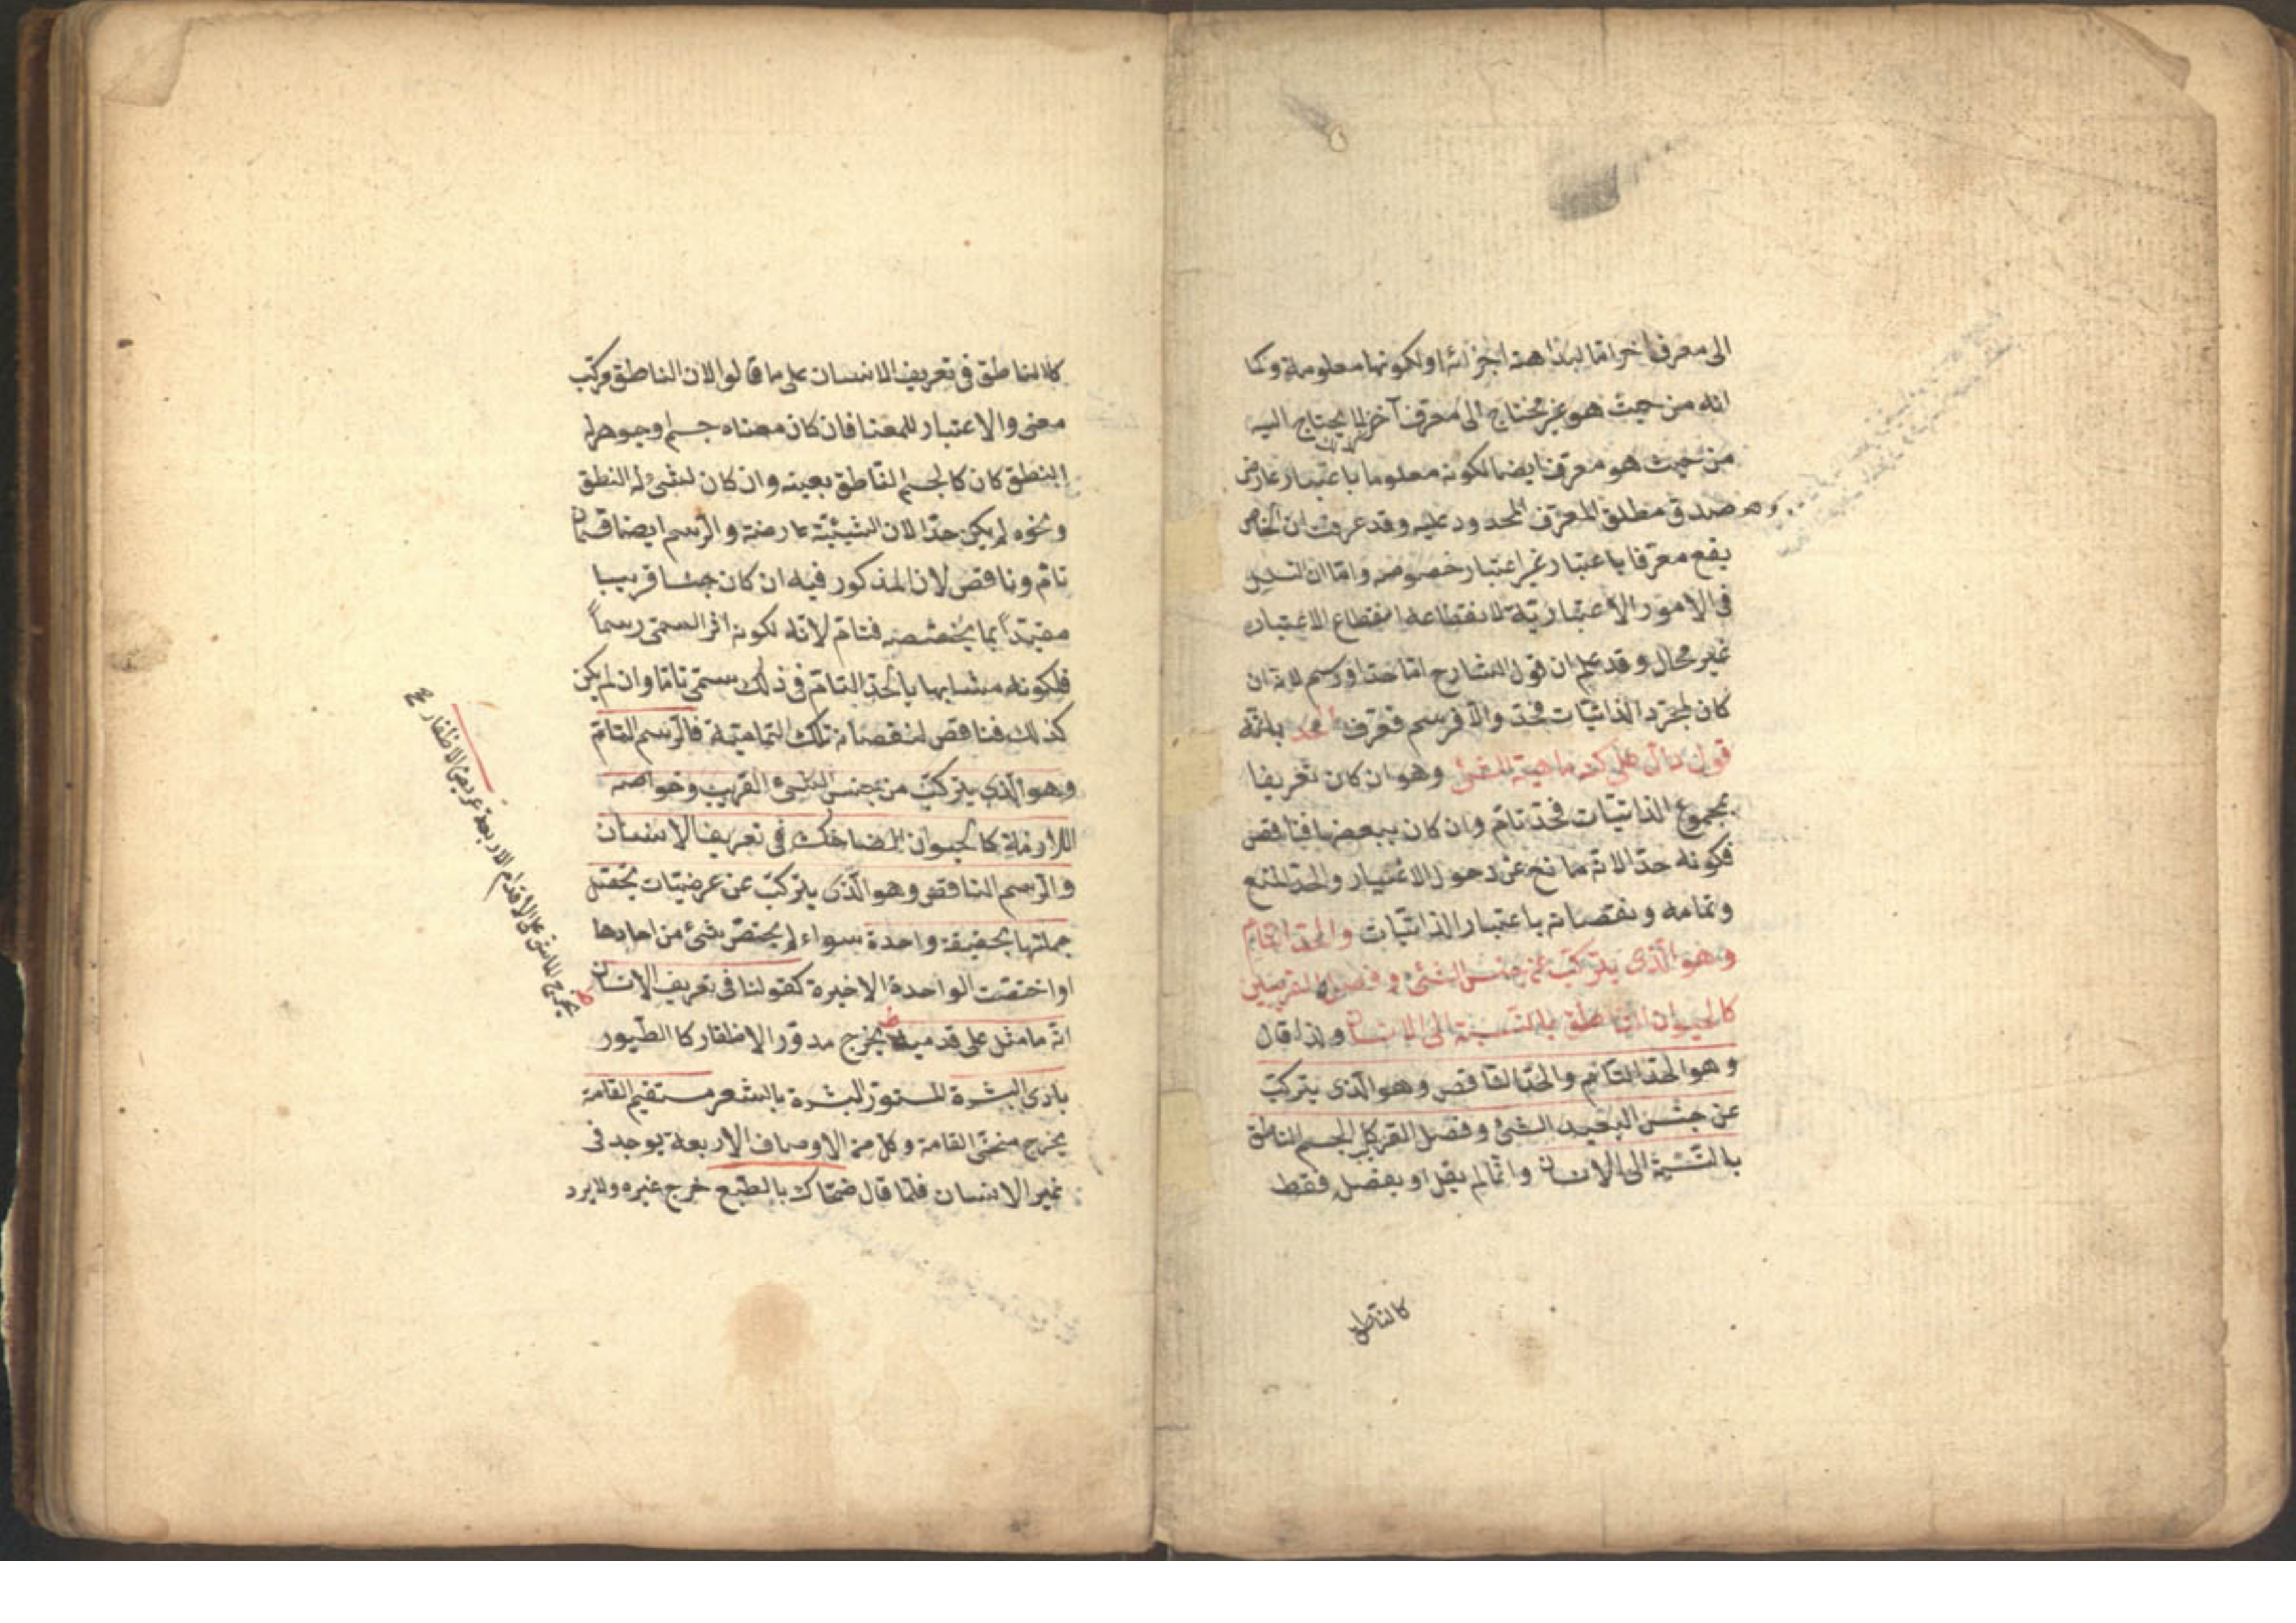 الى معرف آخر اما لبداهة اجزائه او لكونها معلومة وكما
انه من حيث هو غير محتاج الى معرف آخر لا يحتاج اليه
من حيث هو معرف ايضا لكونه معلوما باعتبار عارض
صدق مطلق المعرف المحدود عليه وقد عرفت ان الخاص
يقع معرفا باعتبار غير اعتبار خصوصه واما ان التسلسل
فى الامور الاعتبارية لانقطاعه انقطاع الاعتبار
غير محال وقد علم ان قول الشارح اما حد او رسم لانه ان
كان لمجرد الذاتيات فحد والا فرسم فعرف الحد بانه
قول دال على كنه ماهية الشئ وهو ان كان تعريفا
بمجموع الذاتيات فحد تام وان كان ببعضها فناقص
فكونه حدا لانه مانع عن دخول الاغيار والحد المنع
وتمامه ونقصانه باعتبار الذاتيات والحد التام
وهو الذى يتركب عن جنس الشئ وفصله القريبين
كالحيوان الناطق بالنسبة الى الانسان ولذا قال
وهو الحد التام والحد الناقص وهو الذى يتركب
عن جنس البعيد الشئ وفصل القريب كالجسم الناطق
بالنسبة الى الانسان وانما لم يقل او بفصل فقط
كالناطق
كالناطق فى تعريف الانسان على ما قالوا لان الناطق مركب
معنى والاعتبار للمعنا فان كان معناه جسم وجوهر له
النطق كان كالجسم الناطق بعينه وان كان لشئ له النطق
ونحوه لم يكن حدا لان الشيئية عارضة والرسم ايضا قسمان
تام وناقص لان المذكور فيه ان كان جنسا قريبا
مقيدا بما يخصصه فتام لانه لكونه اثر السمى رسماً
فلكونه مشابها بالحد التام فى ذلك سمى تاما وان لم يكن
كذلك فناقص لنقصانه تلك التمامية فالرسم التام
وهو الذى يتركب من جنس الشئ القريب وخواصه
اللازمة كالحيوان الضاحك فى تعريف الانسان
والرسم الناقص وهو الذى يتركب عن عرضيات تختص
جملتها بحقيقة واحدة سواء لم يختص بشئ من احادها
او اختصت الواحدة الاخيرة كقولنا فى تعريف الانسان
انه ماش على قدميه يخرج مدور الاظفار كالطيور
بادى البشرة لمستور البشرة بالشعر مستقيم القامة
يخرج منحنى القامة وكل من الاوصاف الاربعة يوجد فى
غير الانسان فلما قال ضحاك بالطبع خرج غيره ولا يرد
يخرج الماشى على الاقدام الاربعة عريض الاظفار صح